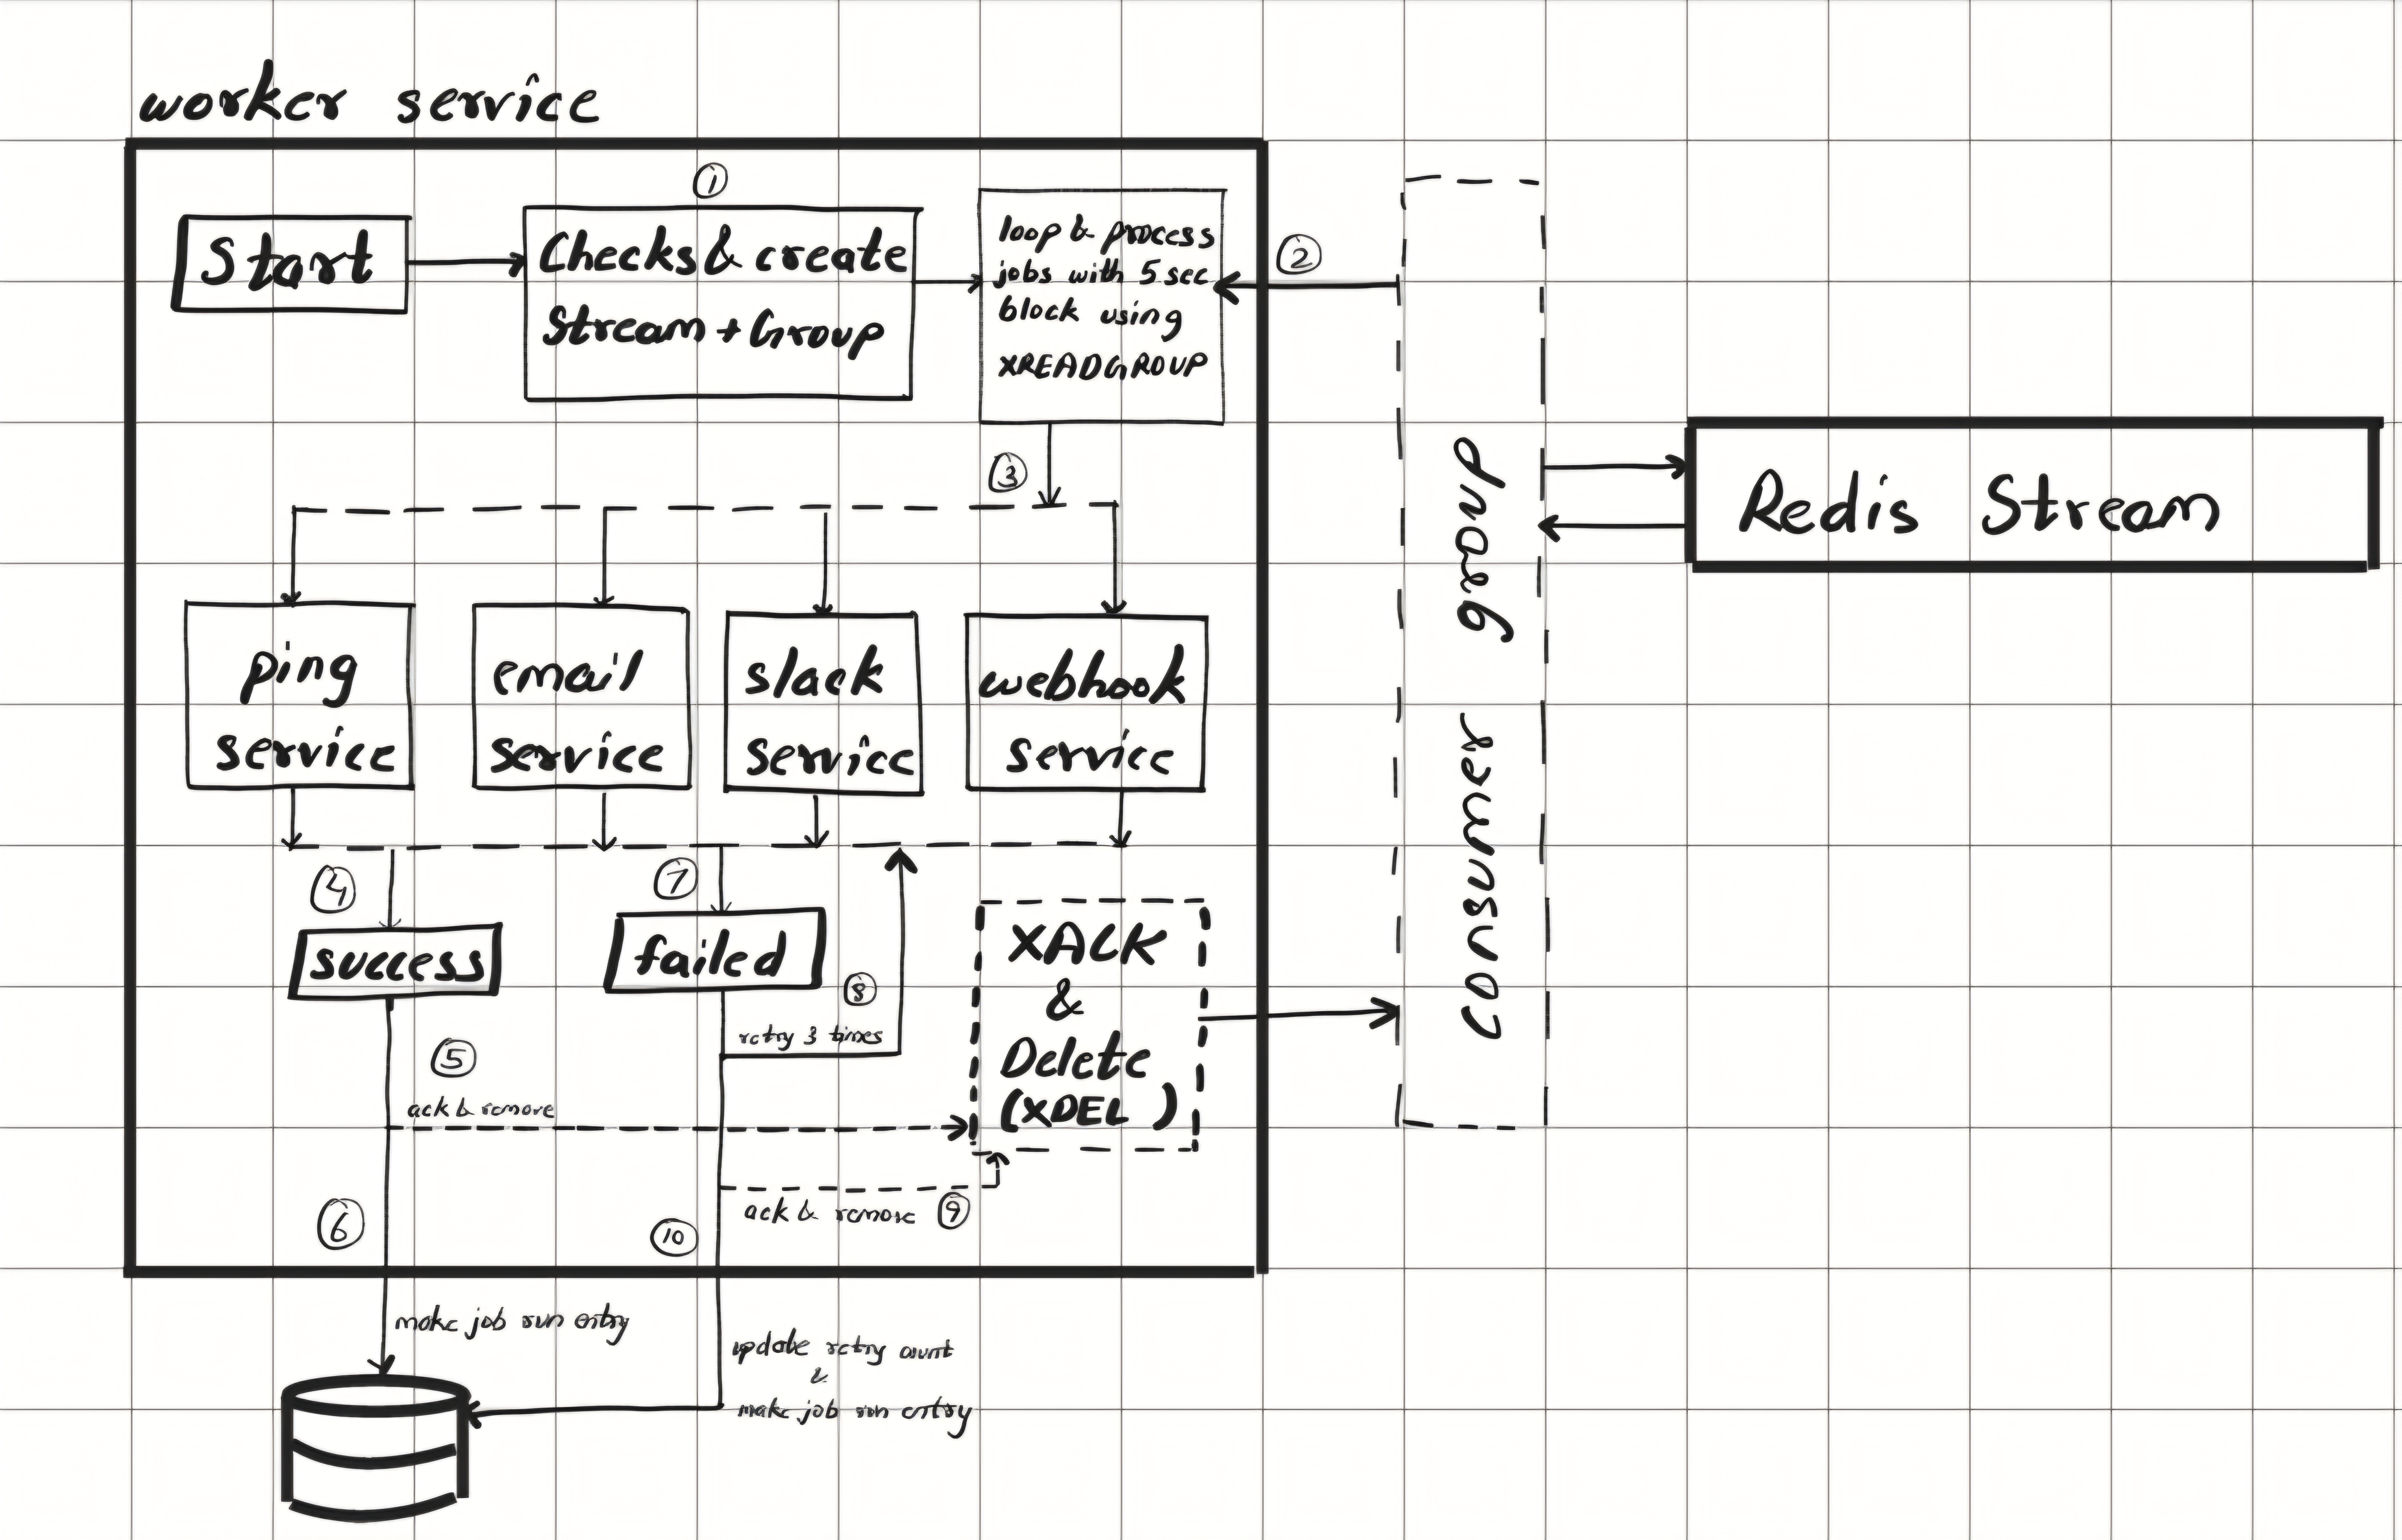 worker service
①
Start
Checks & create
Stream + Group
loop & process
jobs with 5 sec
block using
XREADGROUP
②
③
consumer group
Redis Stream
ping
service
email
service
slack
service
webhook
service
④
⑦
success
failed
⑧
retry 3 times
XACK
&
Delete
(XDEL)
⑤
ack & remove
ack & remove ⑨
⑥
⑩
make job run entry
update retry count
&
make job run entry